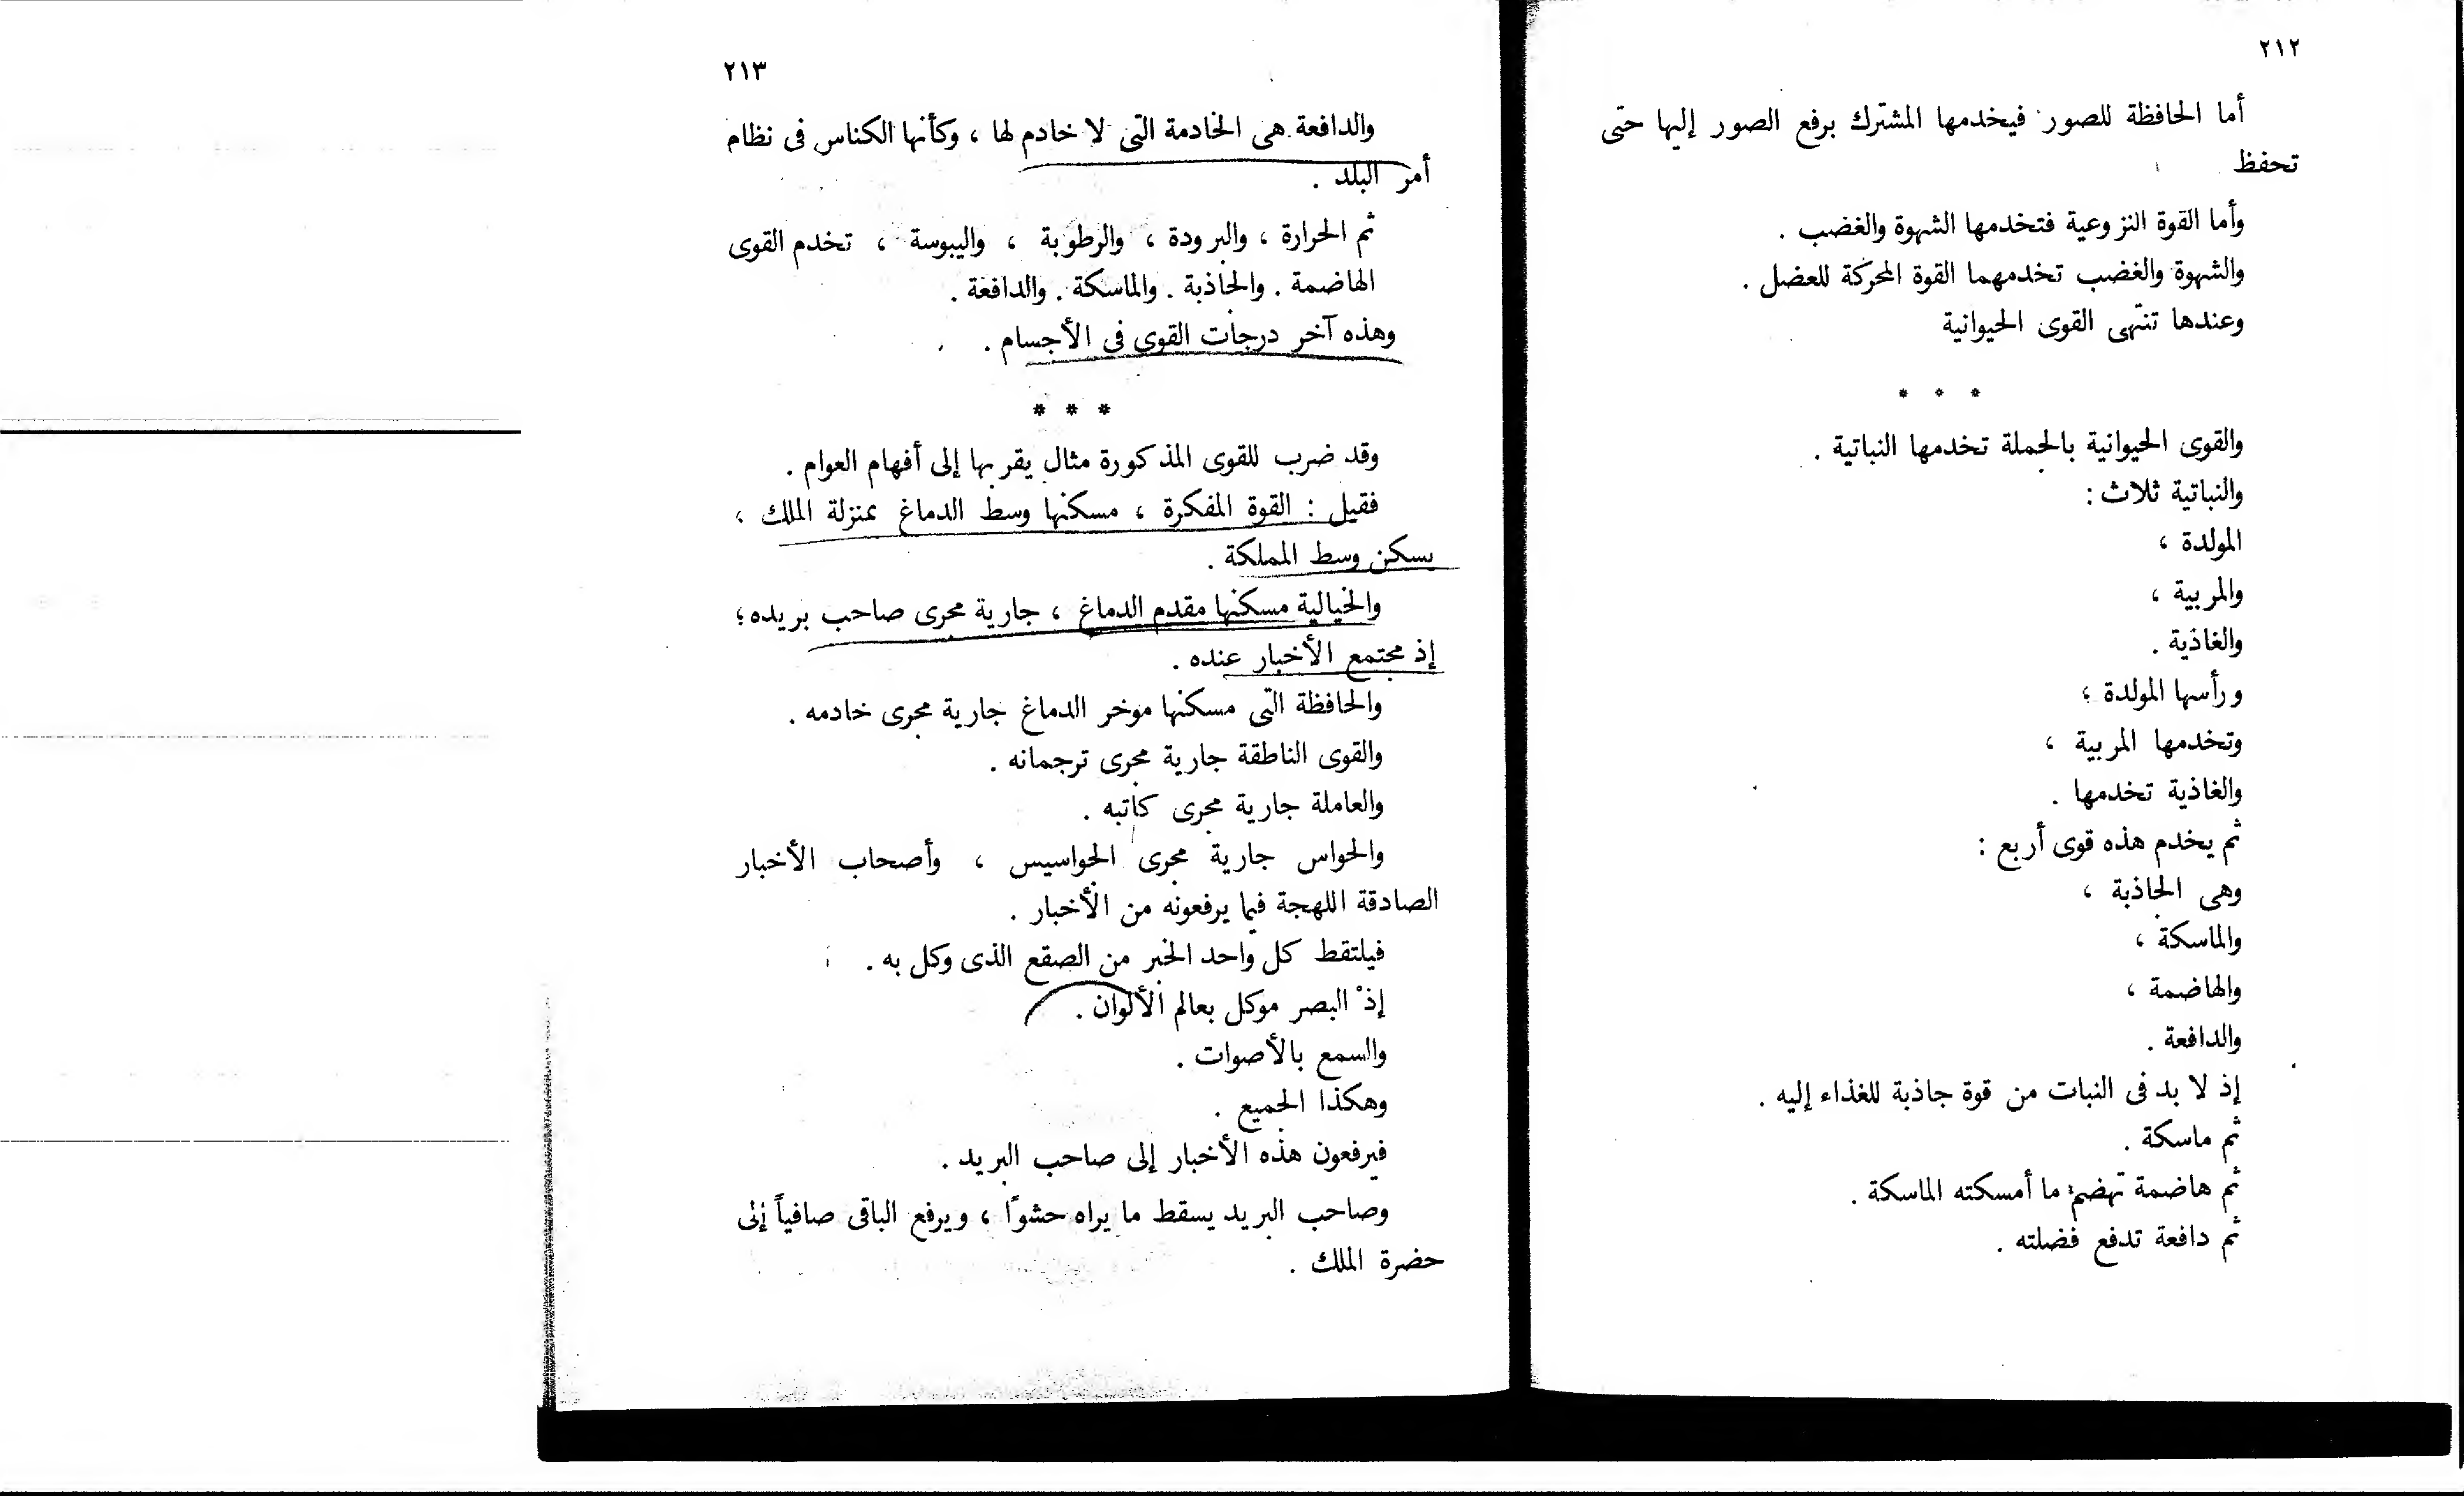 ٢١٢
أما الحافظة للصور فيخدمها المشترك برفع الصور إليها حتى
تحفظ
وأما القوة النزوعية فتخدمها الشهوة والغضب .
والشهوة والغضب تخدمهما القوة المحركة للعضل .
وعندها تنتهى القوى الحيوانية
* * *
والقوى الحيوانية بالجملة تخدمها النباتية .
والنباتية ثلاث :
المولدة ،
والمربية ،
والغاذية .
ورأسها المولدة ؛
وتخدمها المربية ،
والغاذية تخدمها .
ثم يخدم هذه قوى أربع :
وهى الجاذبة ،
والماسكة ،
والهاضمة ،
والدافعة .
إذ لا بد فى النبات من قوة جاذبة للغذاء إليه .
ثم ماسكة .
ثم هاضمة تهضم ما أمسكته الماسكة .
ثم دافعة تدفع فضلته .
٢١٣
والدافعة هى الخادمة التى لا خادم لها ، وكأنها الكناس فى نظام
أمر البلد .
ثم الحرارة ، والبرودة ، والرطوبة ، واليبوسة ، تخدم القوى
الهاضمة . والجاذبة . والماسكة . والدافعة .
وهذه آخر درجات القوى فى الأجسام .
* * *
وقد ضرب للقوى المذكورة مثال يقربها إلى أفهام العوام .
فقيل : القوة المفكرة ، مسكنها وسط الدماغ بمنزلة الملك ؛
يسكن وسط المملكة .
والخيالية مسكنها مقدم الدماغ ، جارية مجرى صاحب بريده ؛
إذ مجتمع الأخبار عنده .
والحافظة التى مسكنها موخر الدماغ جارية مجرى خادمه .
والقوى الناطقة جارية مجرى ترجمانه .
والعاملة جارية مجرى كاتبه .
والحواس جارية مجرى الجواسيس ، وأصحاب الأخبار
الصادقة اللهجة فيما يرفعونه من الأخبار .
فيلتقط كل واحد الخبر من الصقع الذى وكل به .
إذْ البصر موكل بعالم الألوان .
والسمع بالأصوات .
وهكذا الجميع .
فيرفعون هذه الأخبار إلى صاحب البريد .
وصاحب البريد يسقط ما يراه حشوًا ، ويرفع الباقى صافياً إلى
حضرة الملك .